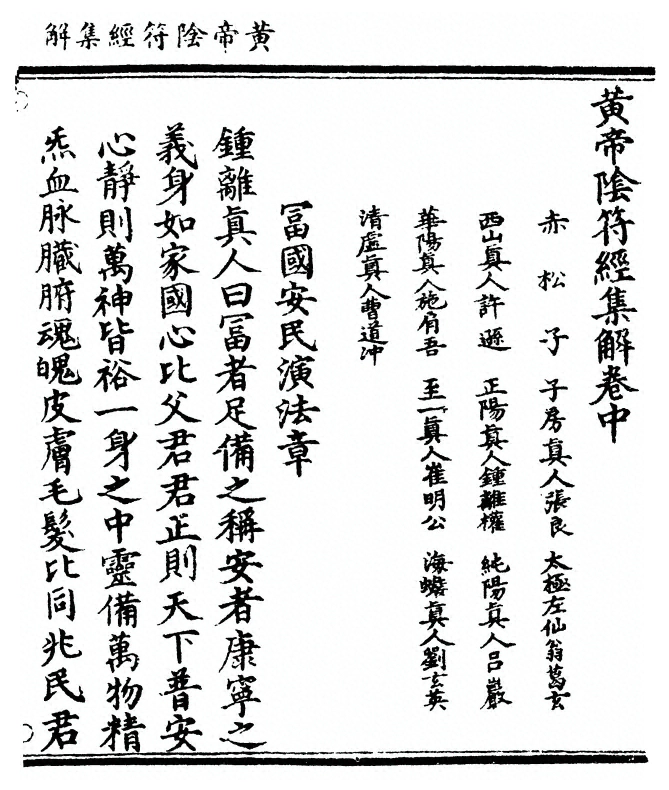 黃帝陰符經集解
黃帝陰符經集解卷中
赤松子 子房真人張良 太極左仙翁葛玄
西山真人許遜 正陽真人鍾離權 純陽真人呂巖
華陽真人施肩吾 至一真人崔明公 海蟾真人劉玄英
清虛真人曹道冲
冨國安民演法章
鍾離真人曰冨者足備之稱安者康寧之
義身如家國心比父君君正則天下普安
心靜則萬神皆裕一身之中靈備萬物精
炁血脉臟腑魂魄皮膚毛髮比同兆民君